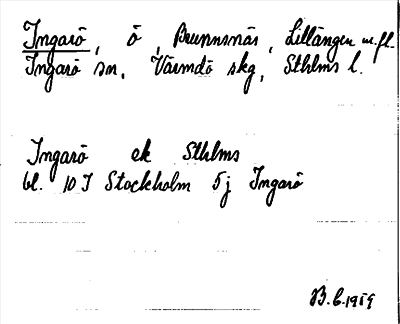 Ingarö, ö, Brunnsnäs, Lillängen m.fl.
Ingarö sn, Värmdö skg, Sthlms l.
Ingarö ek Sthlms
bl. 10 I Stockholm 5j Ingarö
B.C. 1959